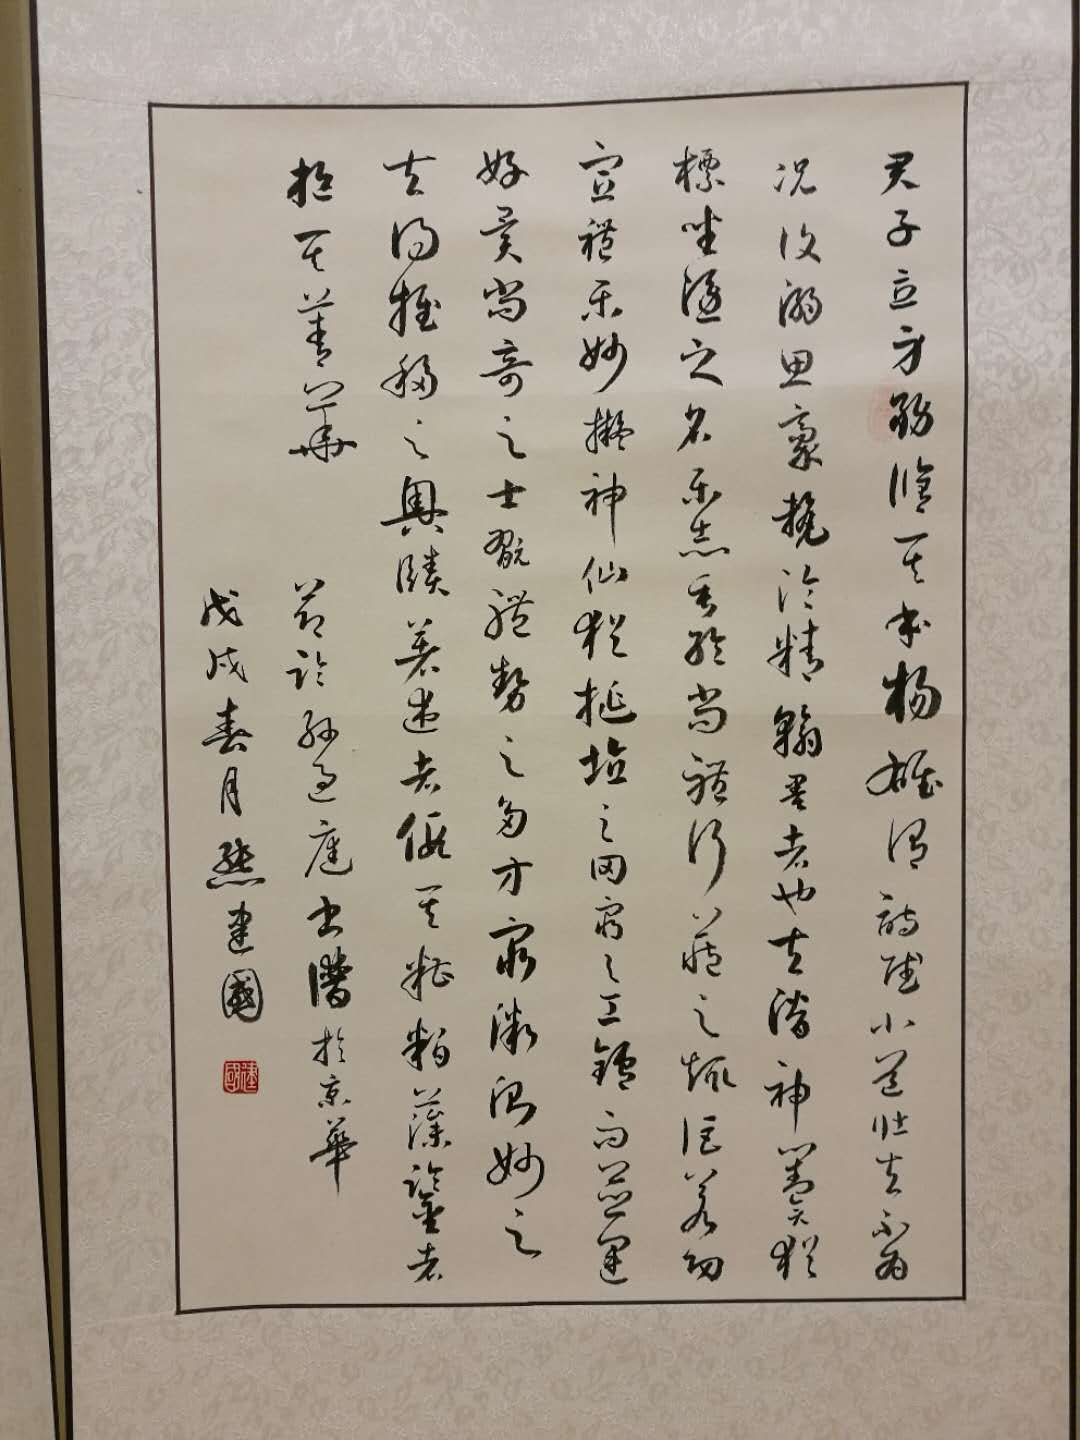 君子立身務脩其本楊雄謂詩賦小道壯夫不為
況復溺思豪氂淪精翰墨者也夫潛神對奕猶
標坐隱之名樂志垂綸尚體行藏之趣詎若功
宣禮樂妙擬神仙猶埏埴之罔窮與工鑪而並運
好異尚奇之士翫體勢之多方窮微測妙之
夫得推移之奧賾著述者假其糟粕藻鑒者
挹其菁華
節臨孫過庭書譜於京華
戊戌春月熊建國
建國